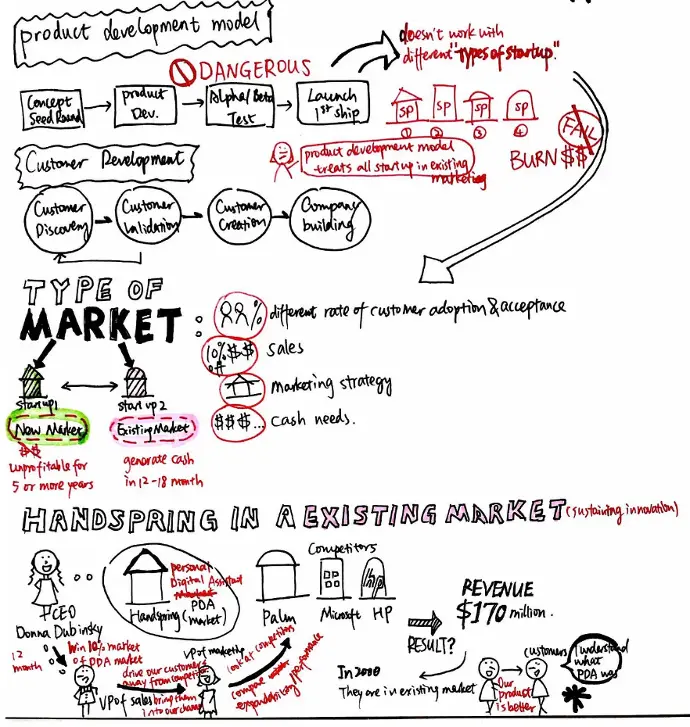 product development model
DANGEROUS
doesn't work with
different "types of startup".
Concept
Seed Round
product
Dev.
Alpha/Beta
Test
Launch
1st ship
SP
SP
SP
SP
①
②
③
④
FAIL
BURN $$
product development model
treats all startup in existing
marketing
Customer Development
Customer
Discovery
Customer
Validation
Customer
Creation
Company
building
TYPE OF
MARKET:
% different rate of customer adoption & acceptance
10% $$ sales
marketing strategy
$$$... cash needs.
startup1
start up 2
New Market
Existing Market
$$
unprofitable for
5 or more years
generate cash
in 12-18 month
HANDSPRING IN A EXISTING MARKET (sustaining innovation)
CEO
Donna Dubinsky
personal
Digital Assistant
Handspring (PDA
market)
Palm
Competitors
Microsoft
hp
HP
REVENUE
$170 million.
RESULT?
In 2000
They are in existing market
12
month
Win 10% market
of PDA market
VP of sales
drive our customers
away from competitor
bring them
into our channel
VP of market
look at competitors
compare
expandability/performance
customers
Our
product
is better
I understand
what
PDA was